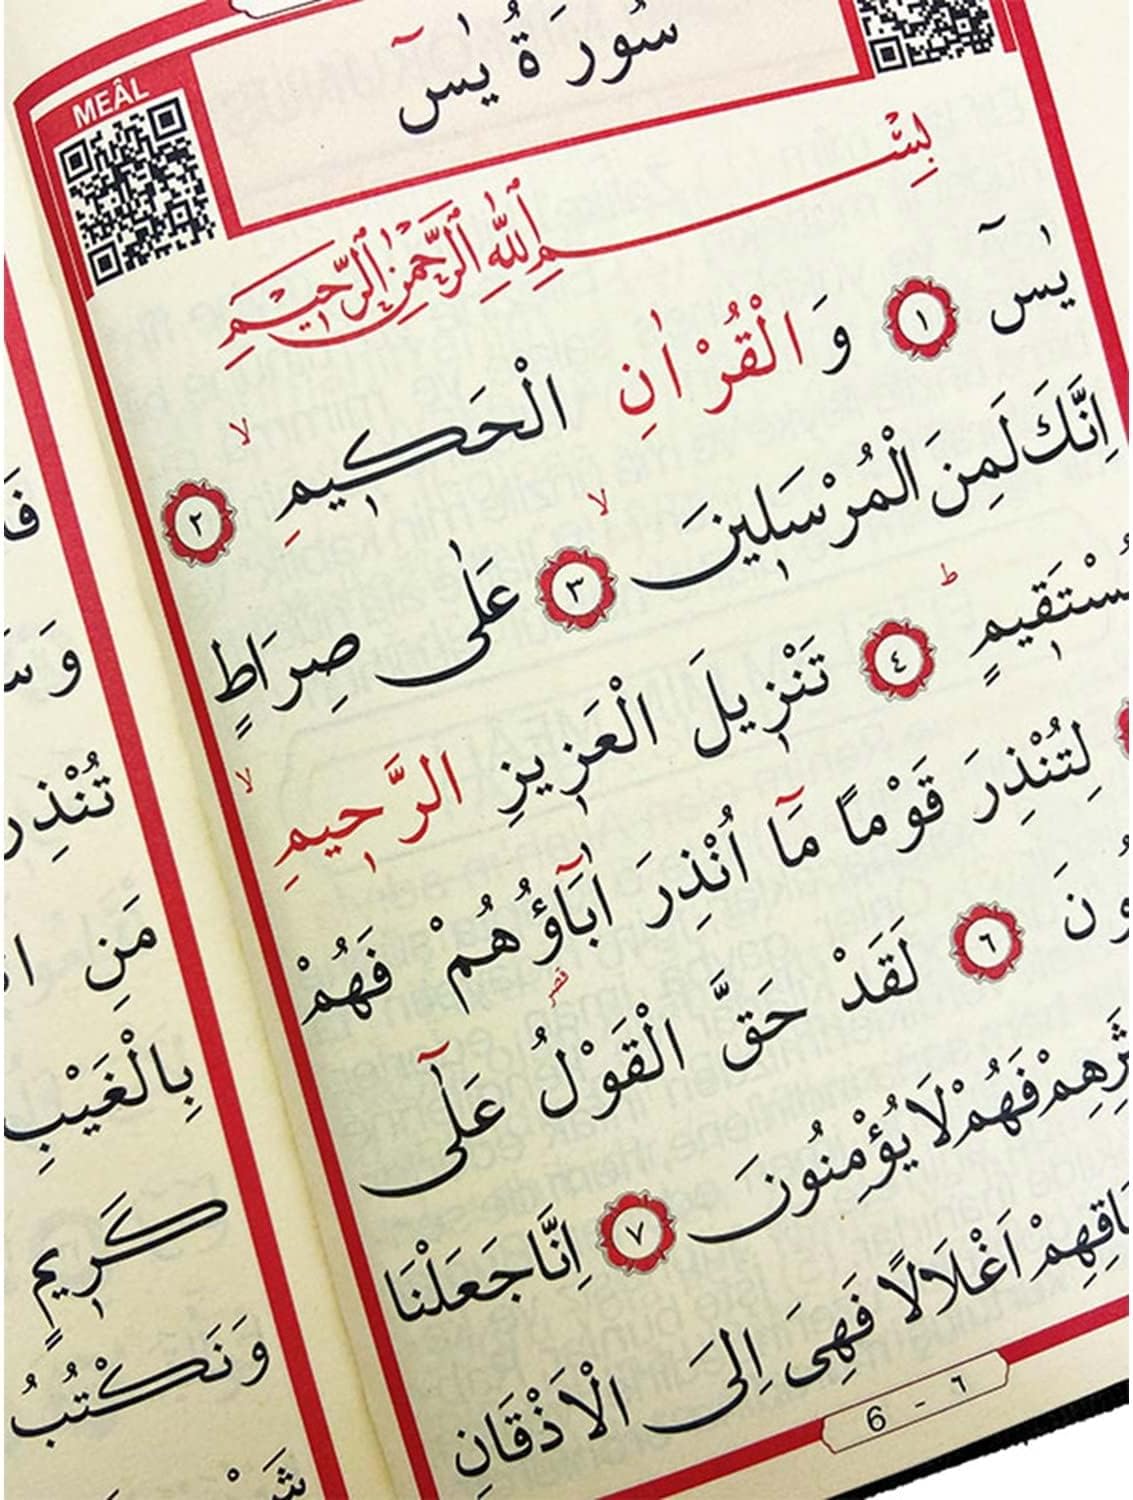 سُورَةُ يٰسٓ
MEÂL
بِسْمِ اللّٰهِ الرَّحْمٰنِ الرَّحِيمِ
يٰسٓ ١ وَالْقُرْاٰنِ الْحَكِيمِ ۙ ٢
اِنَّكَ لَمِنَ الْمُرْسَلِينَ ۙ ٣ عَلٰى صِرَاطٍ
مُسْتَقِيمٍ ۜ ٤ تَنْزِيلَ الْعَزِيزِ الرَّحِيمِ ۙ
لِتُنْذِرَ قَوْمًا مَٓا اُنْذِرَ اٰبَٓاؤُهُمْ فَهُمْ
٦ لَقَدْ حَقَّ الْقَوْلُ عَلٰٓى
فَهُمْ لَا يُؤْمِنُونَ ٧ اِنَّا جَعَلْنَا
اَغْلَالًا فَهِىَ اِلَى الْاَذْقَانِ
6 - ٦
تُنْذِرُ
مَنِ
بِالْغَيْبِ
كَرِيمٍ
وَنَكْتُبُ